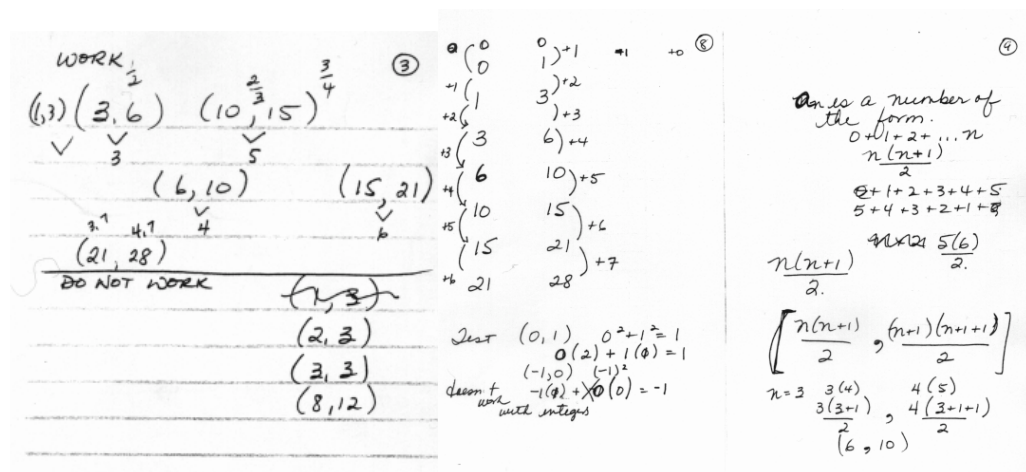 WORK
3
1/2
2/3
3/4
(1,3) (3,6) (10,15)
3
5
(6,10) (15,21)
4
6
3·7 4·7
(21, 28)
DO NOT WORK
(1, 3)
(2, 3)
(3, 3)
(8, 12)
8
0 0 +1 +0
0 1
+1 +2
1 3
+2 +3
3 6
+3 +4
6 10
+4 +5
10 15
+5 +6
15 21
+6 +7
21 28
Test (0,1) 0²+1²=1
0(2)+1(0)=1
(-1,0) (-1)²
doesn't work
0(0) = -1
with integers
9
an is a number of
the form.
0+1+2+...n
n(n+1)
2
0+1+2+3+4+5
5+4+3+2+1+0
5(6)
2.
n(n+1)
2.
[n(n+1)/2, (n+1)(n+1+1)/2]
n=3 3(4) 4(5)
3(3+1)/2, 4(3+1+1)/2
(6, 10)